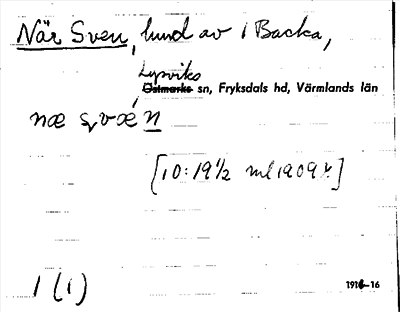 När Sven, hund av 1 Backa,
Lysviks
Östmarks sn, Fryksdals hd, Värmlands län
næ svæ´n
[10:19½ ml 1909 ]
1 (1)
1916-16